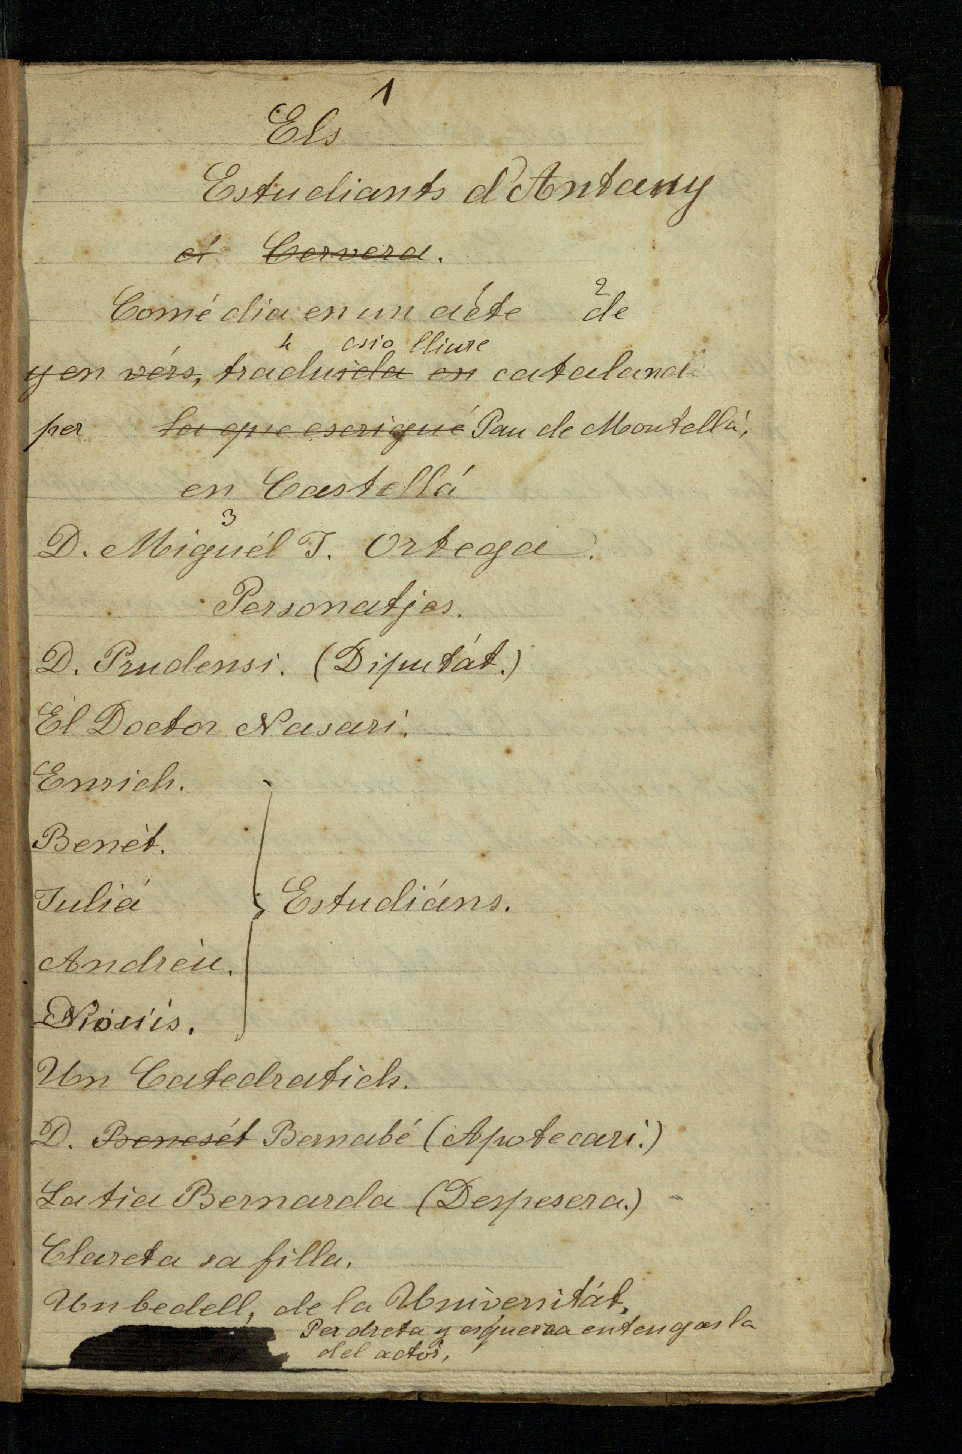 1
Els
Estudiants d'Antany
á Cervera.
Comédia en un ácte de
2
4 csió lliure
y en vérs, traduida en catalana
per la que escrigué Pau de Montellá,
en Castellá
3
D. Miguél T. Ortega.
Personatjes.
D. Prudensi. (Diputát.)
El Doctor Nasari.
Enrich.
Benét.
Juliá
Estudiáns.
Andréu.
Un Catedratich.
D. Benesét Bernabé (Apotecari.)
La tia Bernarda (Despesera.)
Clareta sa filla.
Un bedell, de la Universitát,
Per dreta y esquerra entengas la
del actor,